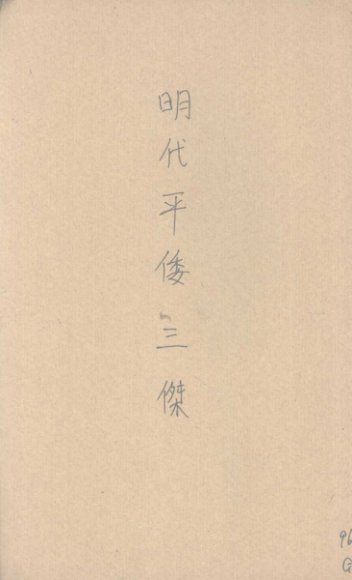 明代平倭三傑
96
G